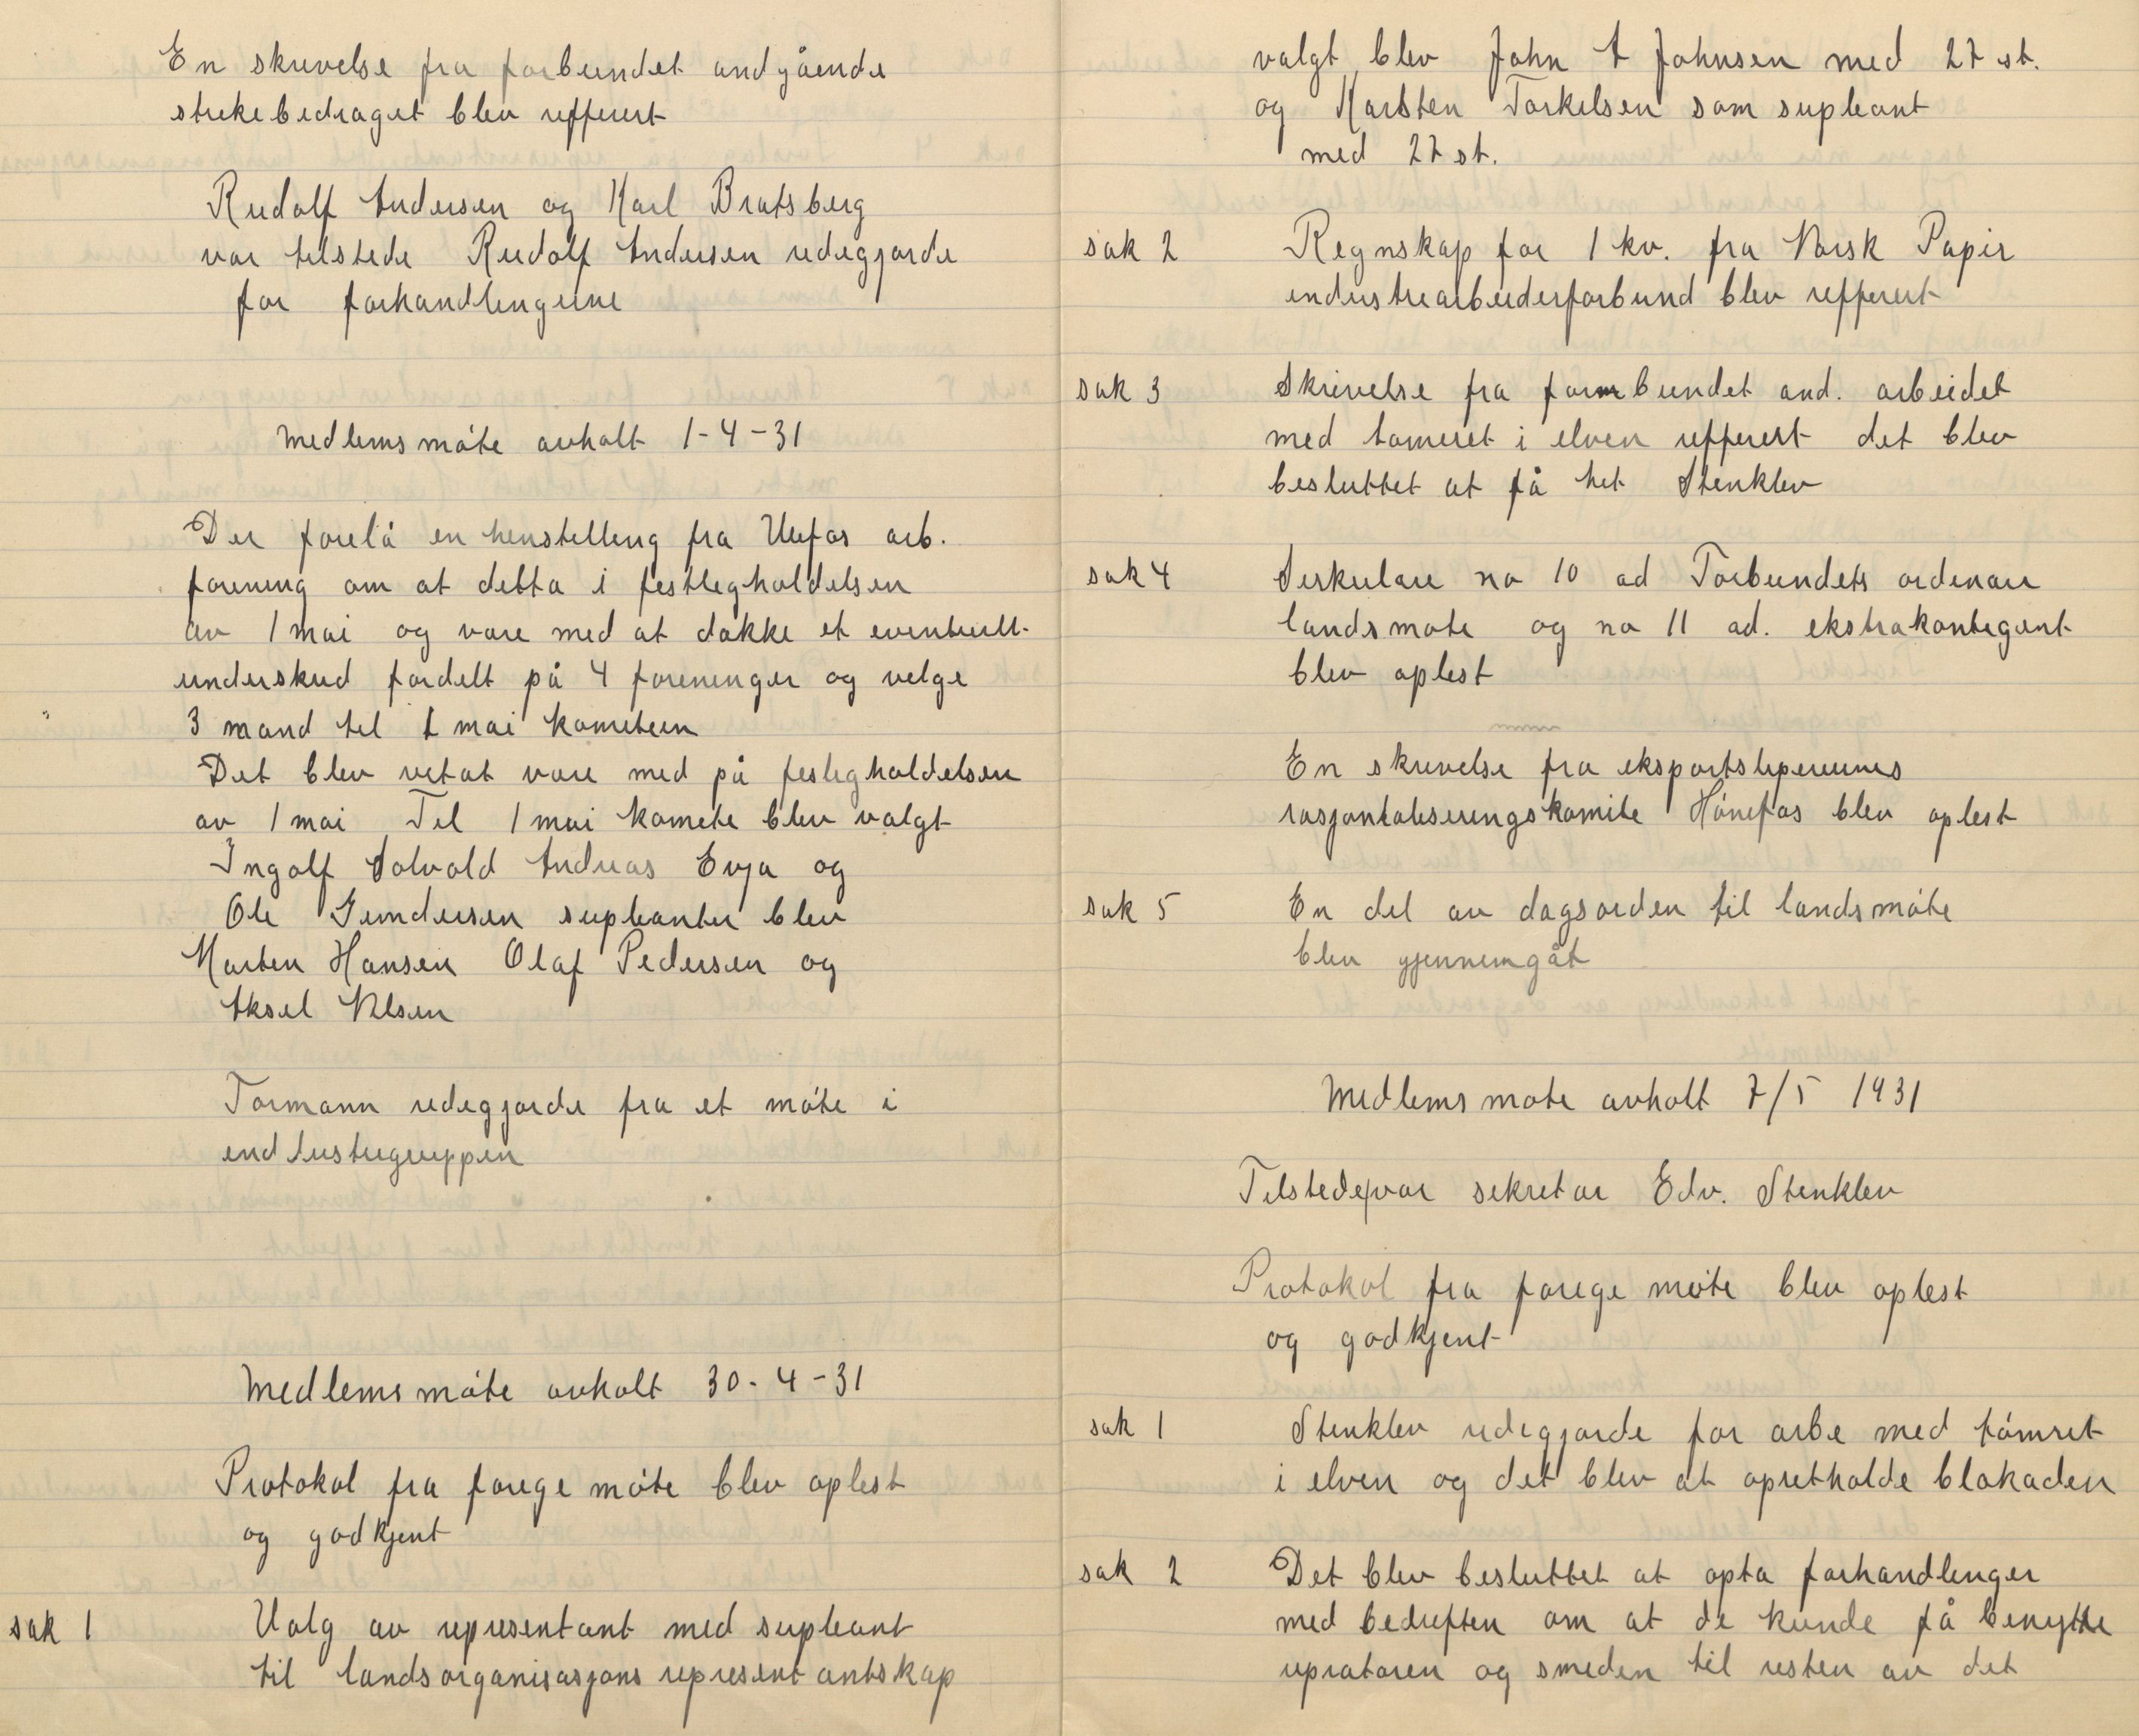 En skrivelse fra forbundet andgående
streikebedraget blev refferert
Rudolf Andersen og Karl Bratsberg
var tilstede Rudolf Andersen redegjorde
for forhandlingerne
Medlemsmøte avholt 1-4-31
Der forelå en henstilling fra Ulefos arb.
forening om at delta i festligholdelsen
av 1 mai og være med at dække et eventuelt
underskud fordelt på 4 foreninger og velge
3 mand til 1 mai komiteen
Det blev vetat være med på festligholdelsen
av 1 mai Til 1 mai komite blev valgt
Ingolf Solvold Andreas Evja og
Ole Gundersen supleanter blev
Marten Hansen Olaf Pedersen og
Aksel Nilsen
Formann redegjorde fra et møte i
industrigruppen
Medlemsmøte avholt 30-4-31
Protokol fra forige møte blev oplest
og godkjent
sak 1 Valg av representant med supleant
til landsorganisasjons representantskap
valgt blev John A Johnsen med 27 st.
og Karsten Torkelsen som supleant
med 27 st.
sak 2 Regnskap for 1 kv. fra Norsk Papir
industriarbeiderforbund blev refferert
sak 3 Skrivelse fra forbundet and. arbeidet
med tømeret i elven refferert det blev
besluttet at få hit Stenklev
sak 4 Serkulære no 10 ad Forbundets ordinær
landsmøte og no 11 ad. ekstrakontigent
blev oplest
En skrivelse fra eksportsliperiernes
rasjonaliseringskomite Hønefos blev oplest
sak 5 En del av dagsorden til landsmøte
blev gjennemgåt
Medlemsmøte avholt 7/5 1931
Tilstede var sekretær Edv. Stenklev
Protokol fra forige møte blev oplest
og godkjent
sak 1 Stenklev redegjorde for arbe med tømret
i elven og det blev at opretholde blokaden
sak 2 Det blev besluttet at opta forhandlinger
med bedriften om at de kunde få benytte
repratøren og smeden til resten av det